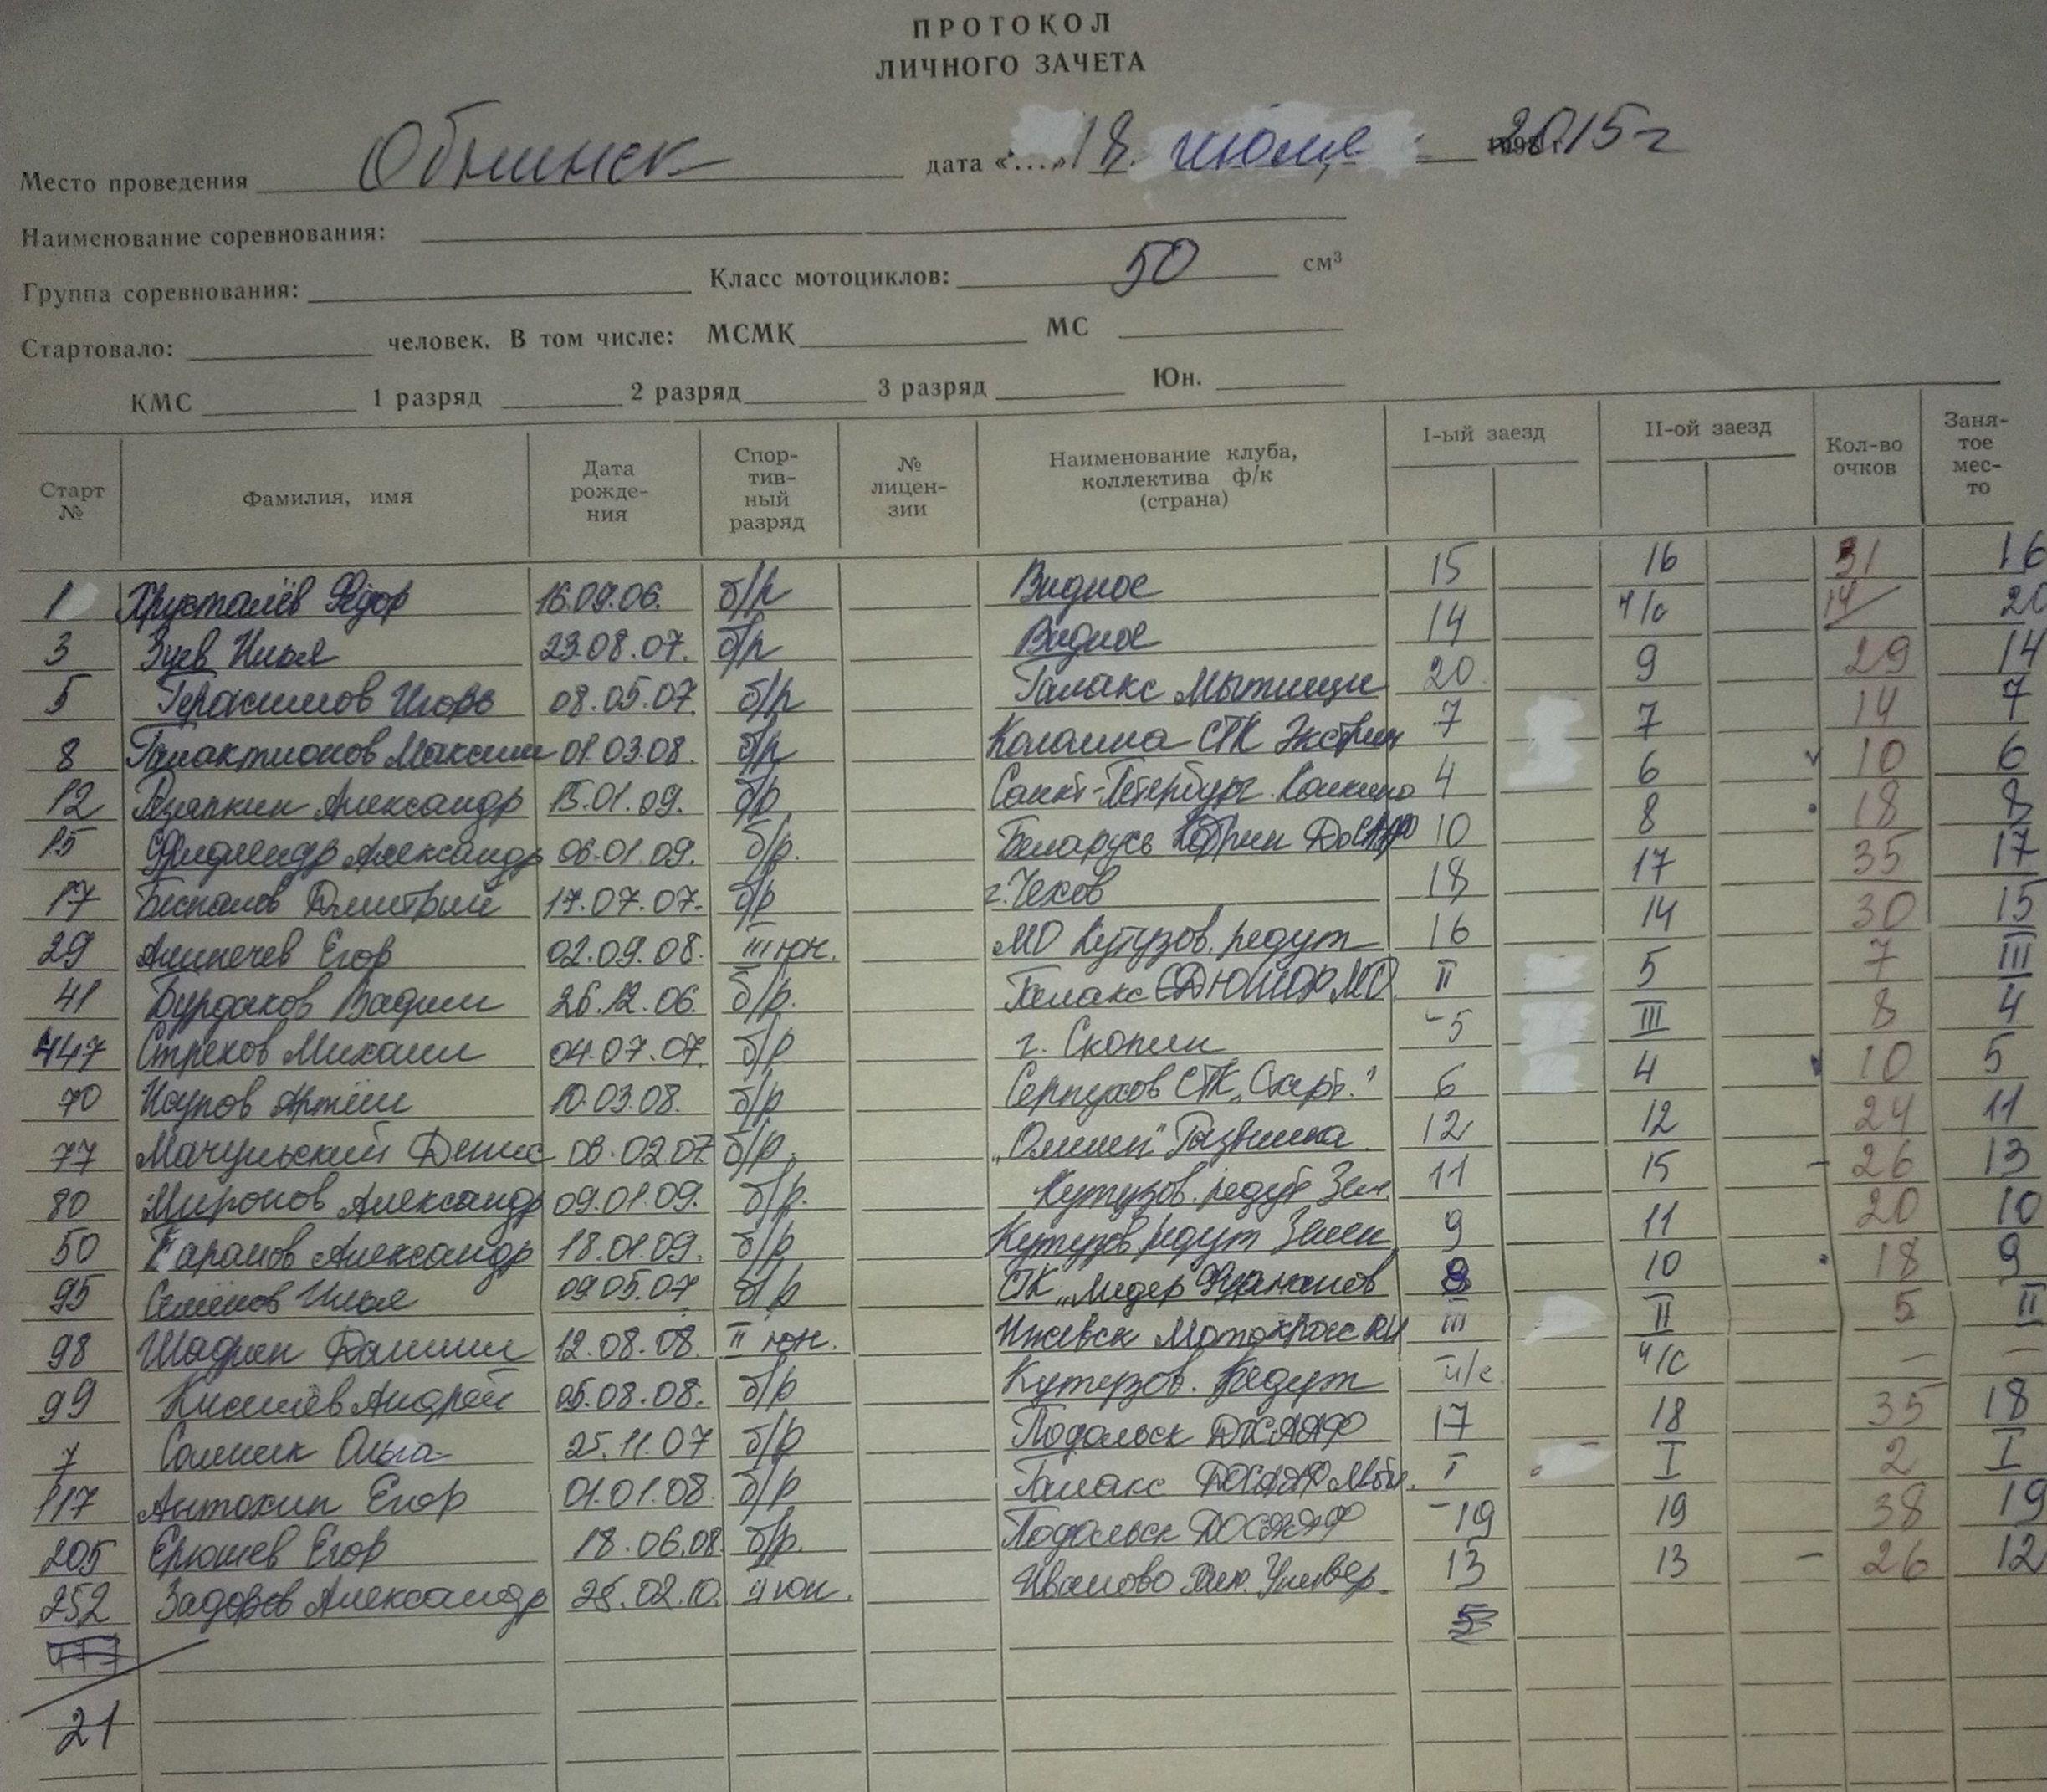 ПРОТОКОЛ
ЛИЧНОГО ЗАЧЕТА
Место проведения Обнинск дата «....» 18 июля 2015 г
Наименование соревнования:
Группа соревнования: Класс мотоциклов: 50 см³
Стартовало: человек. В том числе: МСМК МС
КМС 1 разряд 2 разряд 3 разряд Юн.
Старт № Фамилия, имя Дата рожде-ния Спор-тив-ный разряд № лицен-зии Наименование клуба, коллектива ф/к (страна) I-ый заезд II-ой заезд Кол-во очков Заня-тое мес-то
1 Хрусталёв Фёдор 16.09.06. б/р Видное 15 16 31 16
3 Зуев Илья 23.08.07. б/р Видное 14 н/с 14 20
5 Герасимов Игорь 08.05.07 б/р Галакс Мытищи 20 9 29 14
8 Галактионов Максим 01.03.08. б/р Коломна СТК Экстрим 7 7 14 7
12 Александр 15.01.09. б/р Санкт-Петербург. 4 6 10 6
15 Александр 06.01.09. б/р. Беларусь Кобрин ДОСААФ 10 8 18 8
17 Беспалов Дмитрий 17.07.07. б/р г. Чехов 18 17 35 17
29 Егор 02.09.08. III юн. МО Кутузов. редут 16 14 30 15
41 Бурдаков Вадим 26.12.06. б/р. Галакс МО II 5 7 III
447 Стрехов Михаил 04.07.07. б/р г. Скопин -5 III 8 4
70 Наупов Артём 10.03.08. б/р Серпухов СТК „Старт." 6 4 10 5
77 Мачульский Денис 08.02.07 б/р. „Олимп" 12 12 24 11
80 Миронов Александр 09.01.09. б/р. Кутузов. редут Зел. 11 15 - 26 13
50 Таранов Александр 18.01.09. б/р Кутузов редут Зелен 9 11 20 10
95 Семёнов Илья 09.05.07 б/р СТК „Лидер 8 10 18 9
98 Шадрин Даниил 12.08.08. II юн. Ижевск Мотокросс III II 5 II
99 Киселёв Андрей 05.08.08. б/р Кутузов. Редут н/с н/с — —
7 Ольга 25.11.07 б/р Подольск ДОСААФ 17 18 35 18
117 Антохин Егор 01.01.08. б/р Галакс ДОСААФ I I 2 I
205 Ерюшев Егор 18.06.08 б/р. Подольск ДОСААФ -19 19 38 19
252 Александр 25.02.10. II юн. Иваново 13 13 - 26 12
21